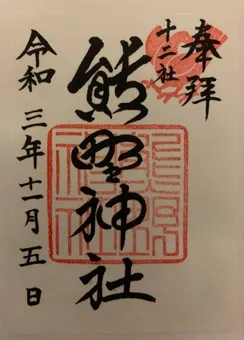 奉拝
十二社
熊野神社
令和三年十一月五日